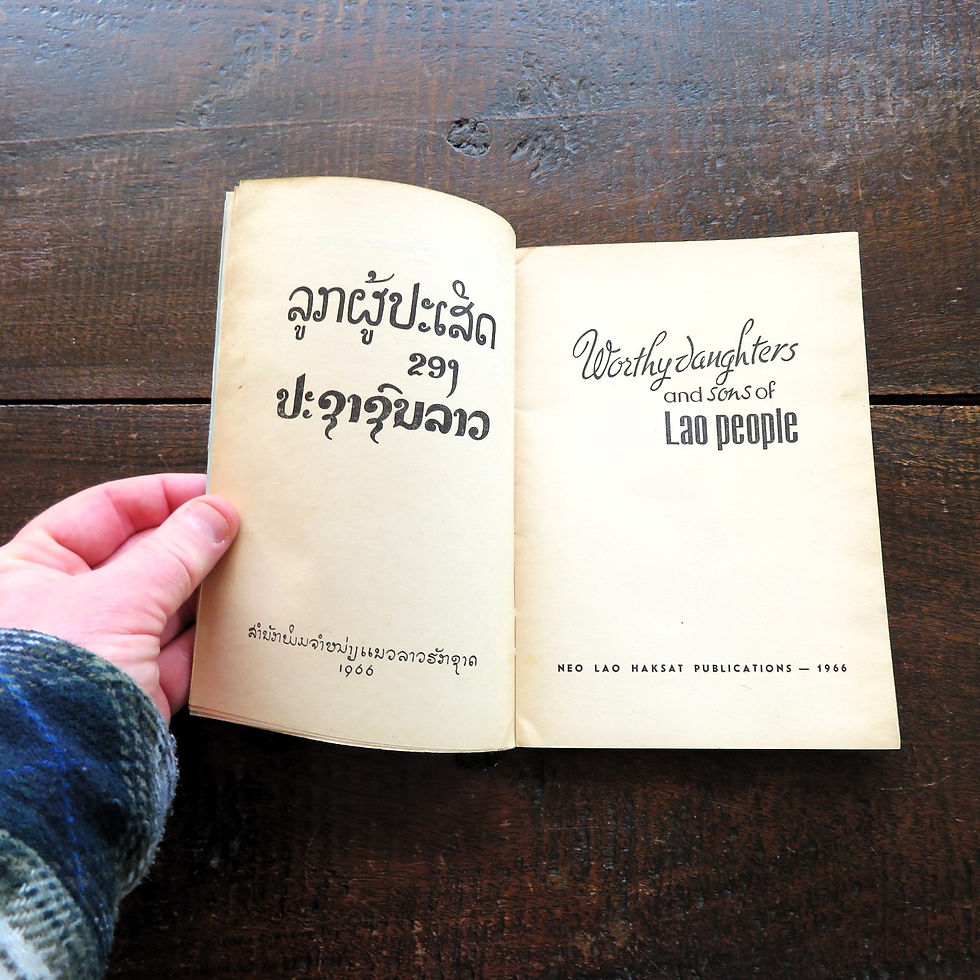 ລູກຜູ້ປະເສີດ
ຂອງ
ປະຊາຊົນລາວ
ສຳນັກພິມຈຳໜ່າຍແນວລາວຮັກຊາດ
1966
Worthy daughters
and sons of
Lao people
NEO LAO HAKSAT PUBLICATIONS — 1966